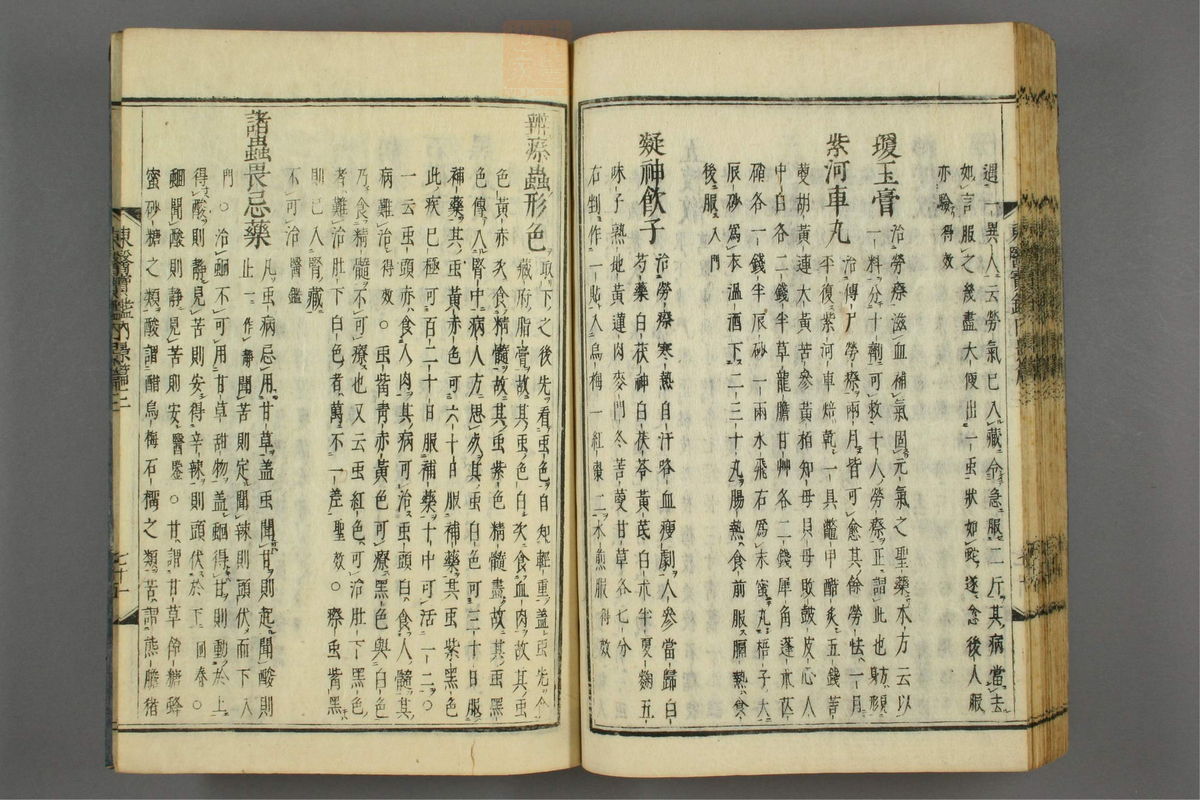 遇一異人云勞氣已入藏令急服二斤其病當去
如言服之幾盡大便出一虫狀如蛇遂愈後人服
亦驗得效
瓊玉膏 治勞瘵滋血補氣固元氣之聖藥本方云以
一料分十劑可救十人勞瘵正謂此也
紫河車丸 治傳尸勞瘵兩月皆可愈其餘勞怯一月
平復紫河車焙乾一具鱉甲酷炙五錢苦
蔓胡黃連大黃苦參黃栢知母貝母敗鼓皮心人
中白各二錢半草龍膽甘艸各二錢犀角蓬朮芒
硝各一錢半辰砂一兩水飛右爲末蜜丸梧子大
辰砂爲衣溫酒下二三十丸腸熱食前服膈熱食
後服入門
凝神飮子 治勞瘵寒熱自汗咯血瘦劇人參當歸白
芍藥白茯神白茯苓黃芪白朮半夏麴五
味子熟地黃蓮肉麥門冬苦蔓甘草各七分
右剉作一貼入烏梅一紅棗二水煎服得效
辨瘵蟲形色 取下之後先看虫色自知輕重盖虫先食
藏府脂膏故其虫色白次食血肉故其虫
色黃赤次食精髓故其虫紫色精髓盡故其虫黑
色傳入腎中病人方思次其虫白色可三十日服
補藥其虫黃赤色可六十日服補藥其虫紫黑色
此疾已極可百二十日服補藥十中可活一二○
一云虫頭赤食人肉其病可治虫頭白食人髓其
病難治得效○虫觜靑赤黃色可療黑色與白色
乃食精髓不可療也又云虫紅色可治肚下黑色
者難治肚下白色者萬不一差聖效○瘵虫觜黑
則已入腎藏
不可治醫鑑
諸蟲畏忌藥 凡虫病忌用甘草盖虫聞甘則起聞酸則
止一作靜聞苦則定聞辣則頭伏而下入
門○治蛔不可用甘草甜物盖蛔得甘則動於上
得酸則靜見苦則安得辛辣則頭伏於下回春○
蛔聞酸則静見苦則安醫鑒○甘謂甘草錫糖蜂
蜜砂糖之類酸謂醋烏梅石榴之類苦謂熊膽猪
東醫寶鑑內景篇三